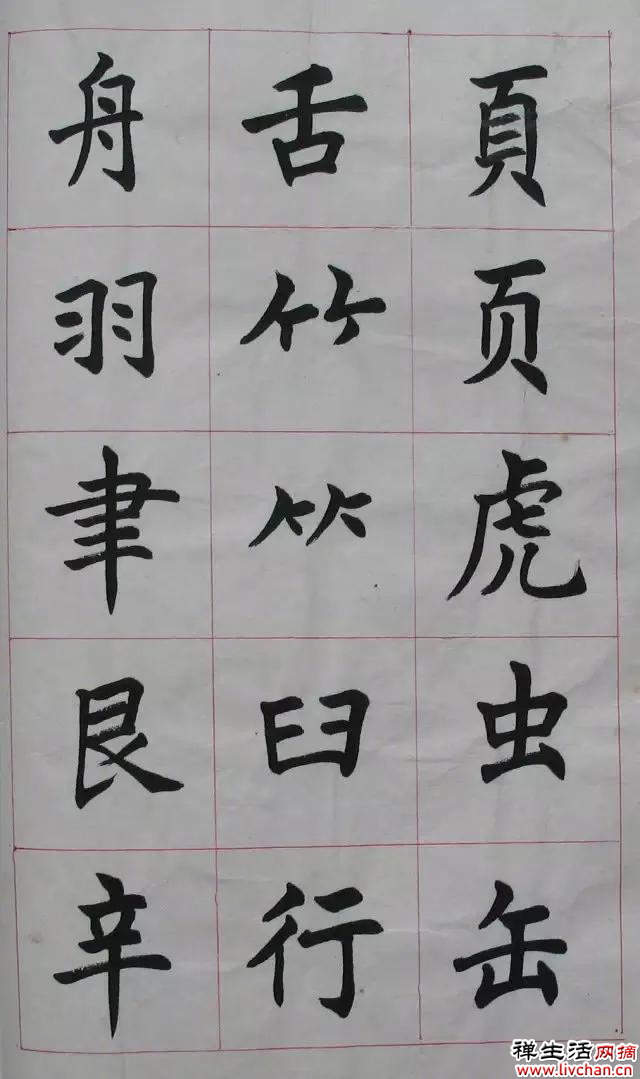 頁页虎虫缶
舌竹⺮臼行
舟羽聿艮辛
禅生活网摘
www.livchan.cn